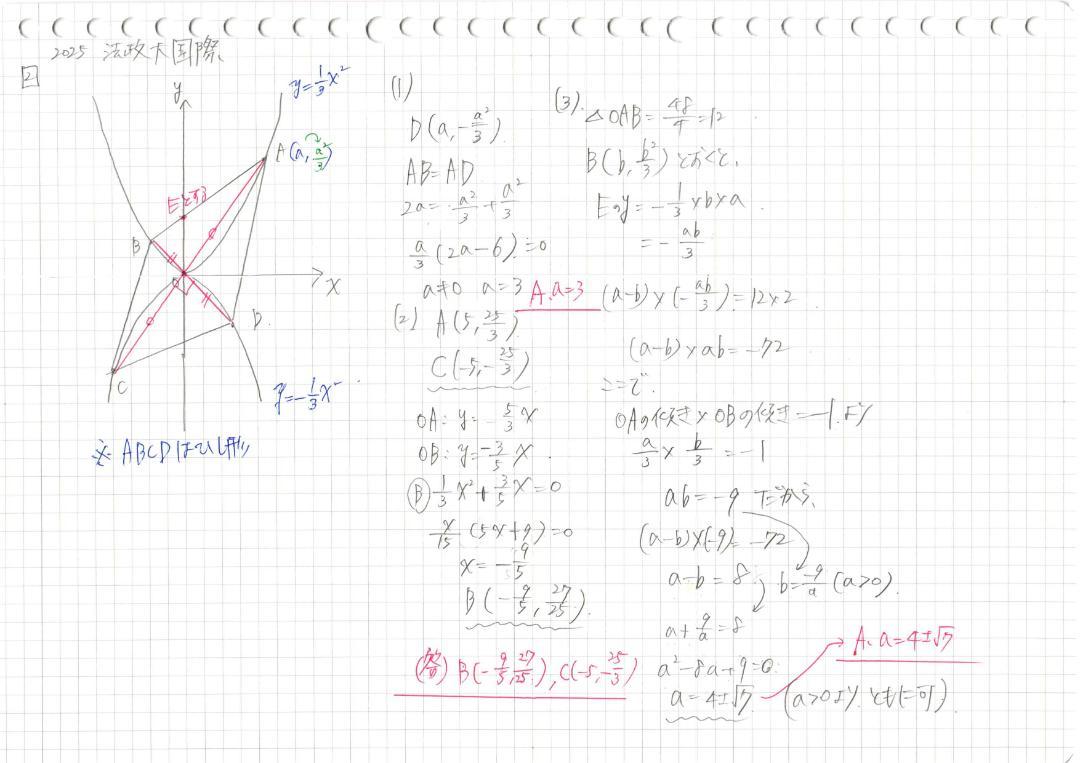 2025 法政大国際
2
y
y=1/3x²
A(a, a²/3)
Eとする
B
O
x
D
C
y=-1/3x²
※ABCDはひし形
(1)
D(a, -a²/3)
AB=AD
2a=a²/3+a²/3
a/3(2a-6)=0
a≠0 a=3 A. a=3
(2) A(5, 25/3)
C(-5, -25/3)
OA: y=5/3x
OB: y=-3/5x
Ⓑ 1/3x²+3/5x=0
x/15(5x+9)=0
x=-9/5
B(-9/5, 27/25)
(答) B(-9/5, 27/25), C(-5, -25/3)
(3). △OAB=48/4=12
B(b, b²/3)とおくと、
Eのy=-1/3×b×a
=-ab/3
(a-b)×(-ab/3)=12×2
(a-b)×ab=-72
ここで、
OAの傾き×OBの傾き=-1より
a/3×b/3=-1
ab=-9 だから、
(a-b)×(-9)=-72
a-b=8 b=-9/a (a>0)
a+9/a=8
a²-8a+9=0
a=4±√7 (a>0よりともに可)
A. a=4±√7